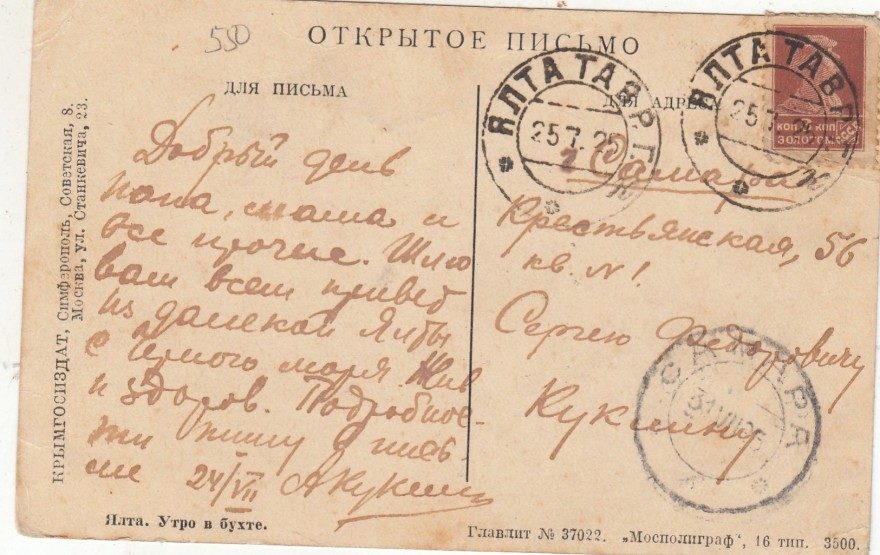 550
ОТКРЫТОЕ ПИСЬМО
ДЛЯ ПИСЬМА
КРЫМГОСИЗДАТ, Симферополь, Советская, 8.
Москва, ул. Станкевича, 23.
Добрый день
папа, мама и
все прочие. Шлю
вам всем привет
из далекой Ялты
с Чёрного моря. Жив
и здоров. Подробнос-
ти пишу в пись
ме 24/VII АКукшин
Ялта. Утро в бухте.
ДЛЯ АДРЕСА
ЯЛТА ТАВР. Г.
25.7.25
ЯЛТА ТАВР. Г.
25.7.
КОП 7 КОП
ЗОЛОТОМ
Самара
Крестьянская, 56
кв. N 1
Сергею Федоровичу
Кукшину
САМАРА
31 VII 25
Главлит № 37022. „Мосполиграф“, 16 тип. 3500.